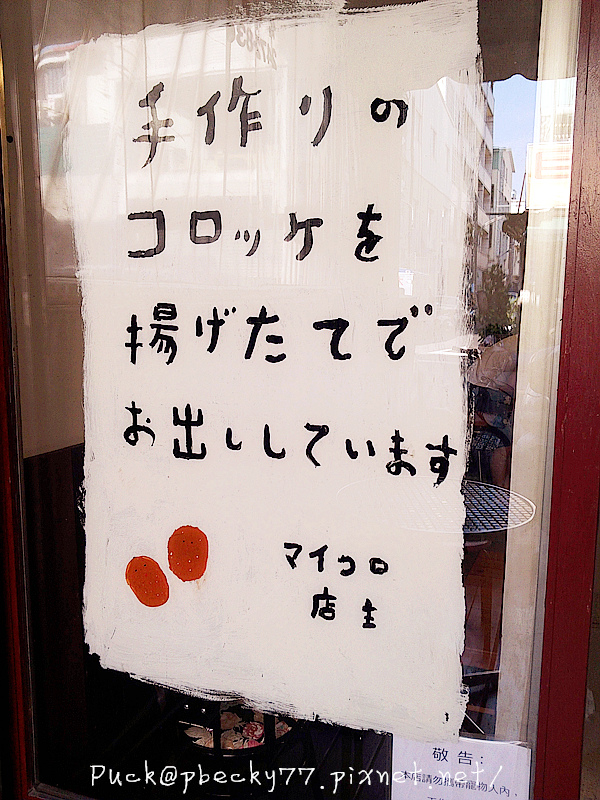 手作りの
コロッケを
揚げたてで
お出ししています
マイコロ
店主
敬告：
本店請勿攜帶寵物入內，
Puck@pbecky77.pixnet.net/